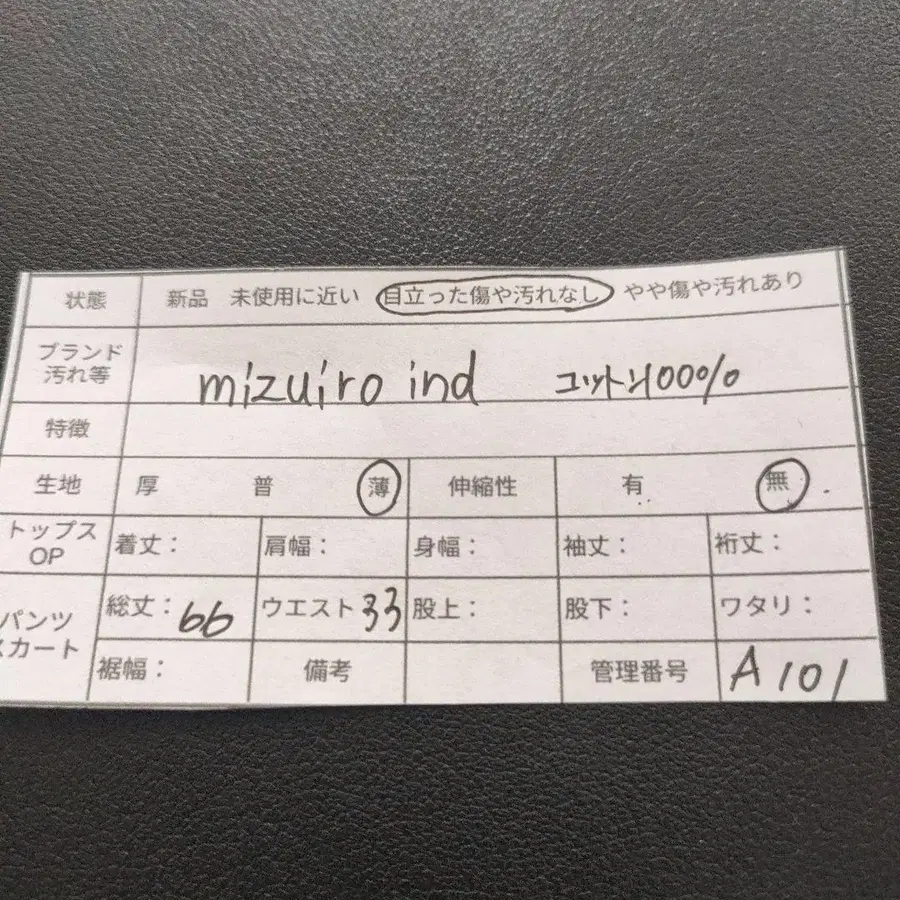 状態 新品 未使用に近い 目立った傷や汚れなし やや傷や汚れあり
ブランド
汚れ等 mizuiro ind コットン100%
特徴
生地 厚 普 薄 伸縮性 有 無
トップス
OP 着丈： 肩幅： 身幅： 袖丈： 裄丈：
パンツ
スカート 総丈：66 ウエスト33 股上： 股下： ワタリ：
裾幅： 備考 管理番号 A101